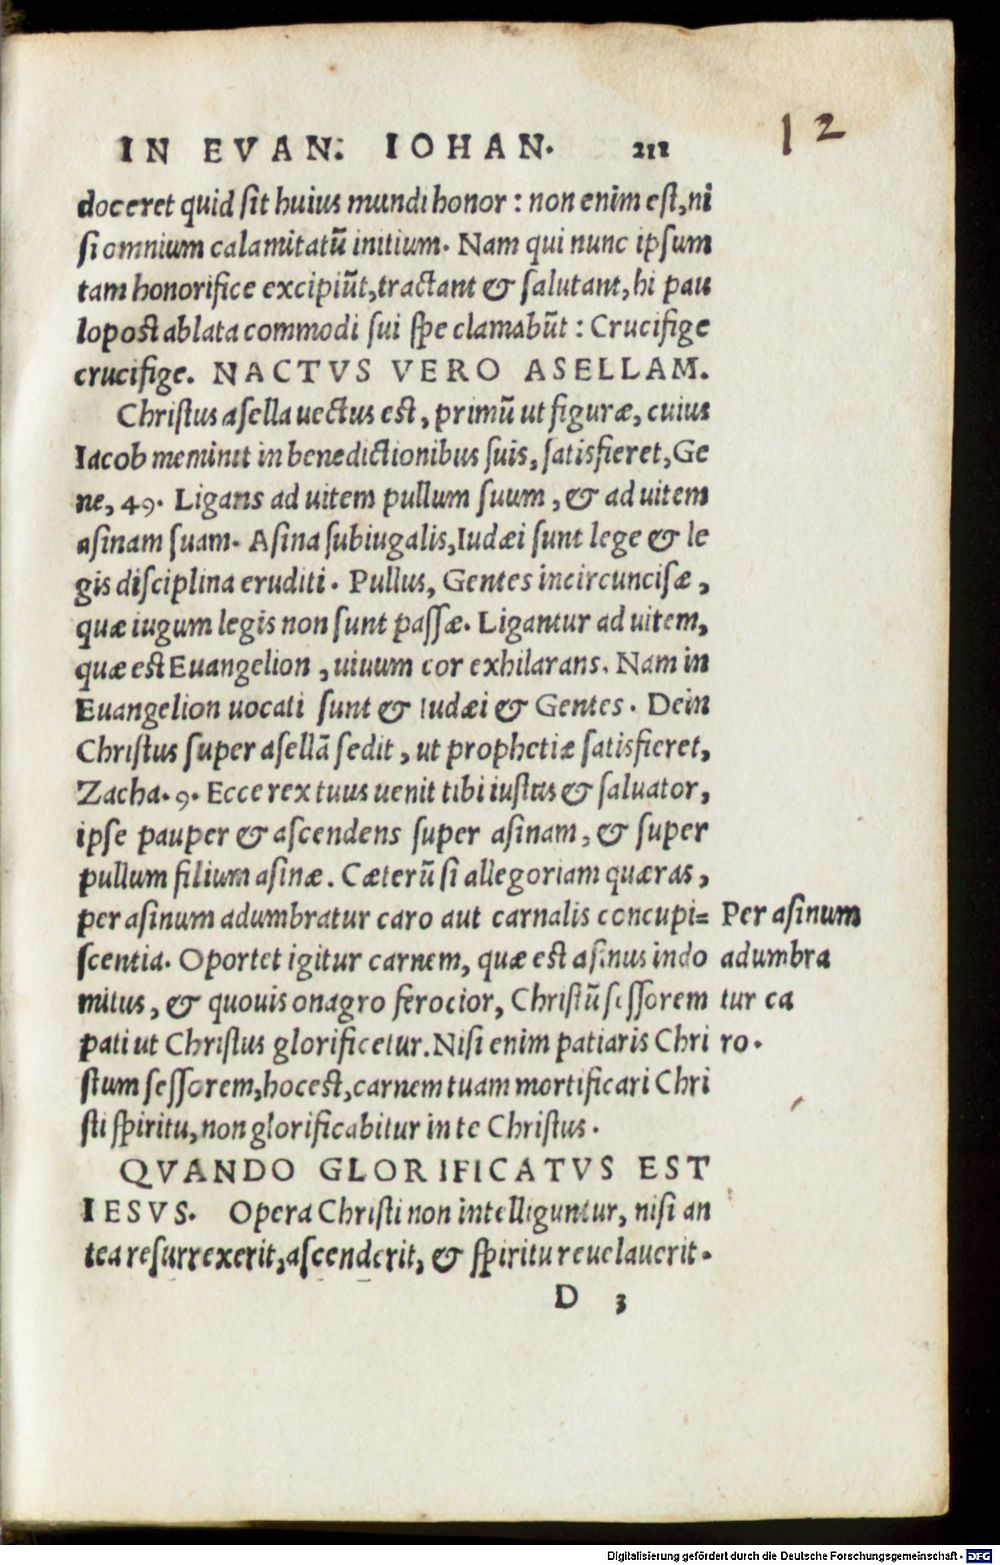 IN EVAN. IOHAN. 211
12
doceret quid sit huius mundi honor : non enim est, ni
si omnium calamitatũ initium. Nam qui nunc ipsum
tam honorifice excipiũt, tractant & salutant, hi pau
lopost ablata commodi sui spe clamabũt : Crucifige
crucifige. NACTVS VERO ASELLAM.
Christus asella uectus est, primũ ut figuræ, cuius
Iacob meminit in benedictionibus suis, satisfieret, Ge
ne, 49. Ligans ad uitem pullum suum, & ad uitem
asinam suam. Asina subiugalis, Iudæi sunt lege & le
gis disciplina eruditi. Pullus, Gentes incircuncisæ,
quæ iugum legis non sunt passæ. Ligantur ad uitem,
quæ est Euangelion, uiuum cor exhilarans. Nam in
Euangelion uocati sunt & Iudæi & Gentes. Dein
Christus super asellã sedit, ut prophetiæ satisfieret,
Zacha. 9. Ecce rex tuus uenit tibi iustus & saluator,
ipse pauper & ascendens super asinam, & super
pullum filium asinæ. Cæterũ si allegoriam quæras,
per asinum adumbratur caro aut carnalis concupi=
scentia. Oportet igitur carnem, quæ est asinus indo
mitus, & quouis onagro ferocior, Christũ sessorem
pati ut Christus glorificetur. Nisi enim patiaris Chri
stum sessorem, hoc est, carnem tuam mortificari Chri
sti spiritu, non glorificabitur in te Christus.
Per asinum
adumbra
tur ca
ro.
QVANDO GLORIFICATVS EST
IESVS. Opera Christi non intelliguntur, nisi an
tea resurrexerit, ascenderit, & spiritu reuelauerit.
D 3
Digitalisierung gefördert durch die Deutsche Forschungsgemeinschaft - DFG